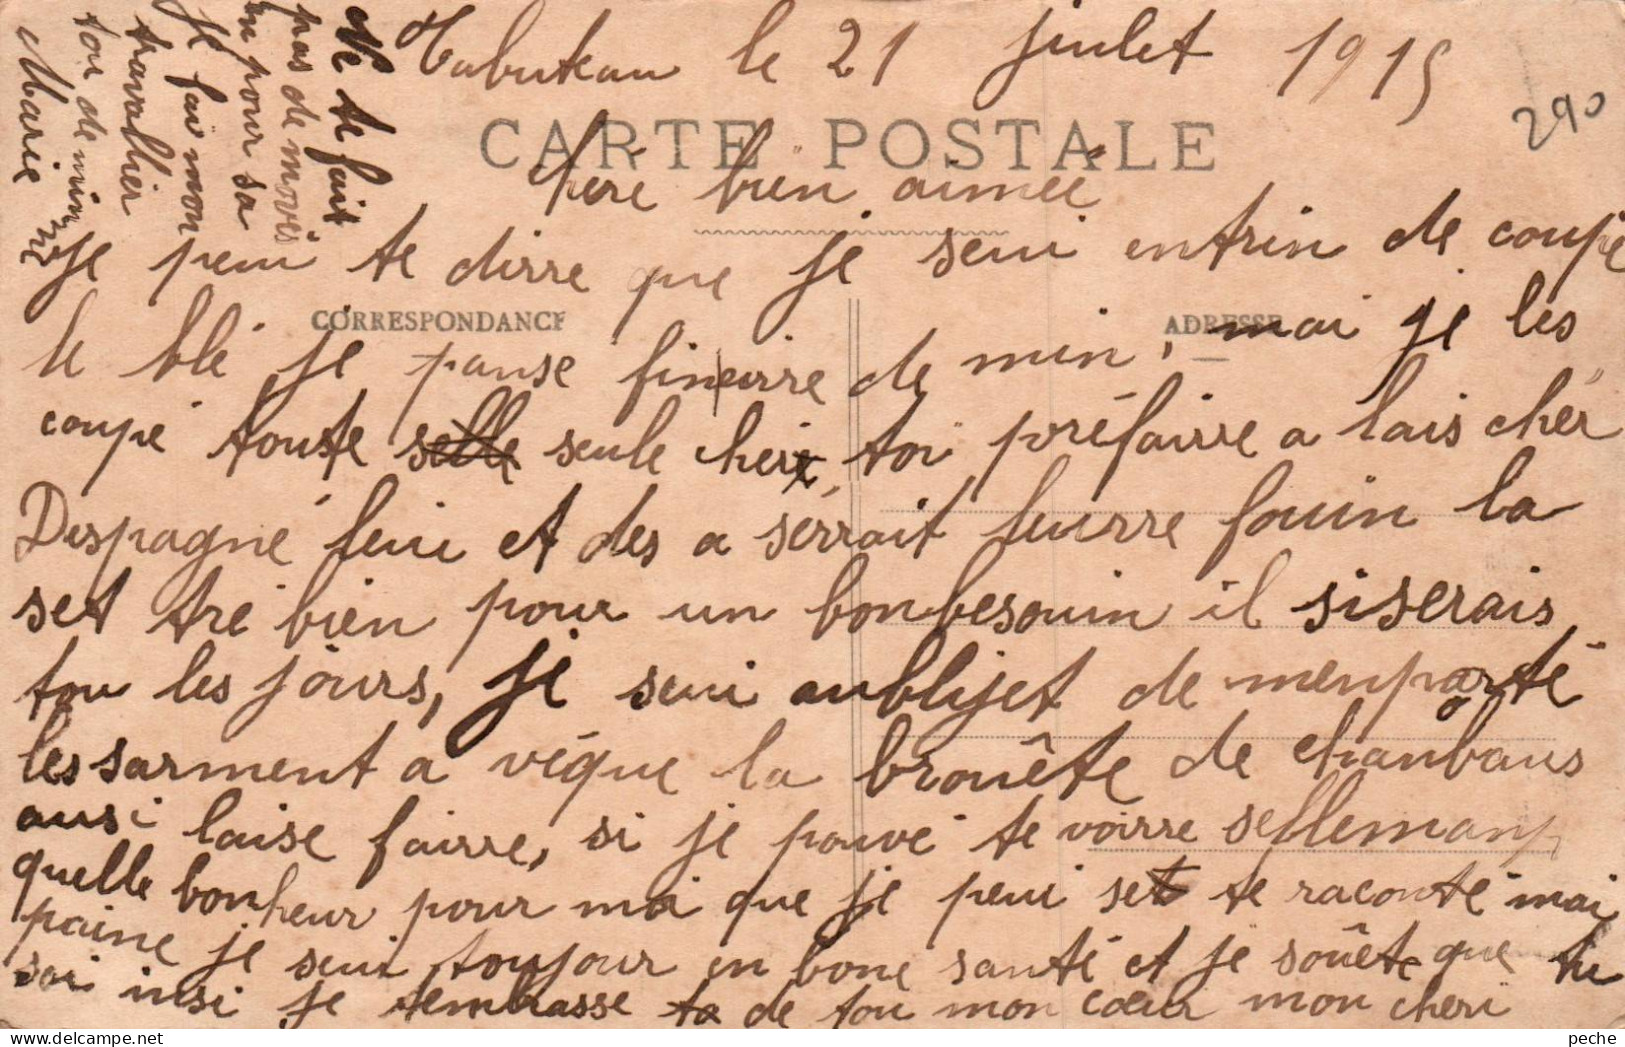 Tabuteau le 21 juilet 1915
290
CARTE POSTALE
chere bien aimée
Je peui te dirre que je seui entrin de coupé
CORRESPONDANCE
ADRESSE
le blé je panse fineirre de min, mai je les
coupé touste selle seule cheri, toi préfairre a lais cher
Despagne feui et des a serrait leurre fouin la
set tré bien pour un bonbesouin il siserais
tou les jours, je seui aublijet de menporté
les sarment a véque la brouête de chanbaus
ausi laise fairre, si je pouvé te voirre sellemanp
quelle bonheur pour moi que je peui set te raconté mai
paine je seui toujour en bone santé et je souête que tu
soi insi je tembrasse ta de tou mon cœur mon cheri
Ne te fait
pas de movés
en pour sa
Je fai mon
travallier
tou de min
Marie
peche